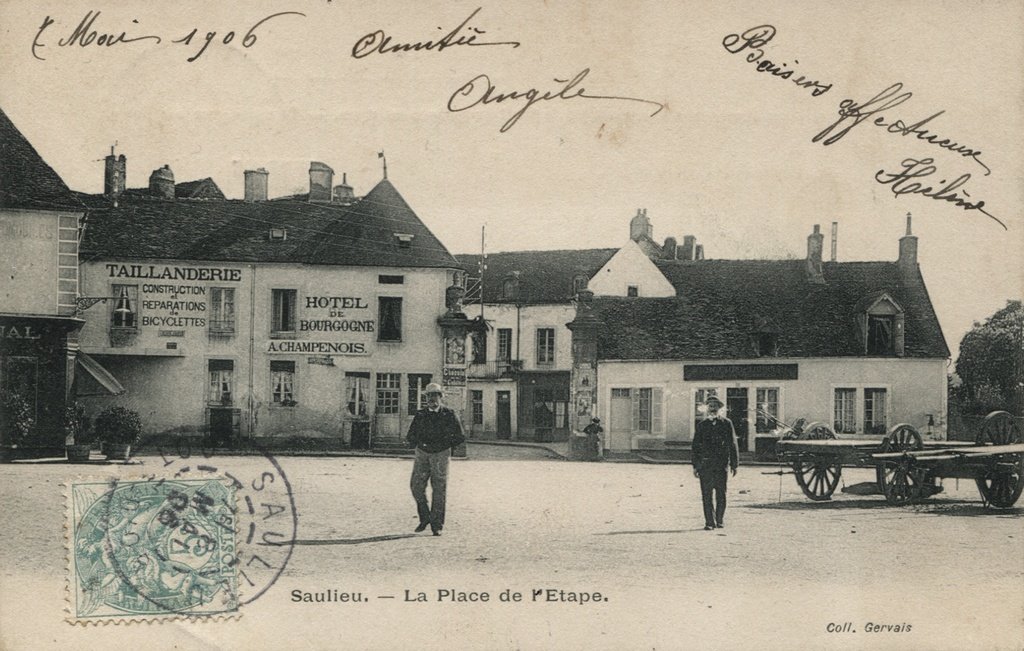 7 Mai 1906
Amitié
Angèle
Baisers
affectueux
Hélène
TAILLANDERIE
CONSTRUCTION
et
REPARATIONS
de
BICYCLETTES
HOTEL
DE
BOURGOGNE
A. CHAMPENOIS.
SAULIEU
Saulieu. — La Place de l'Etape.
Coll. Gervais